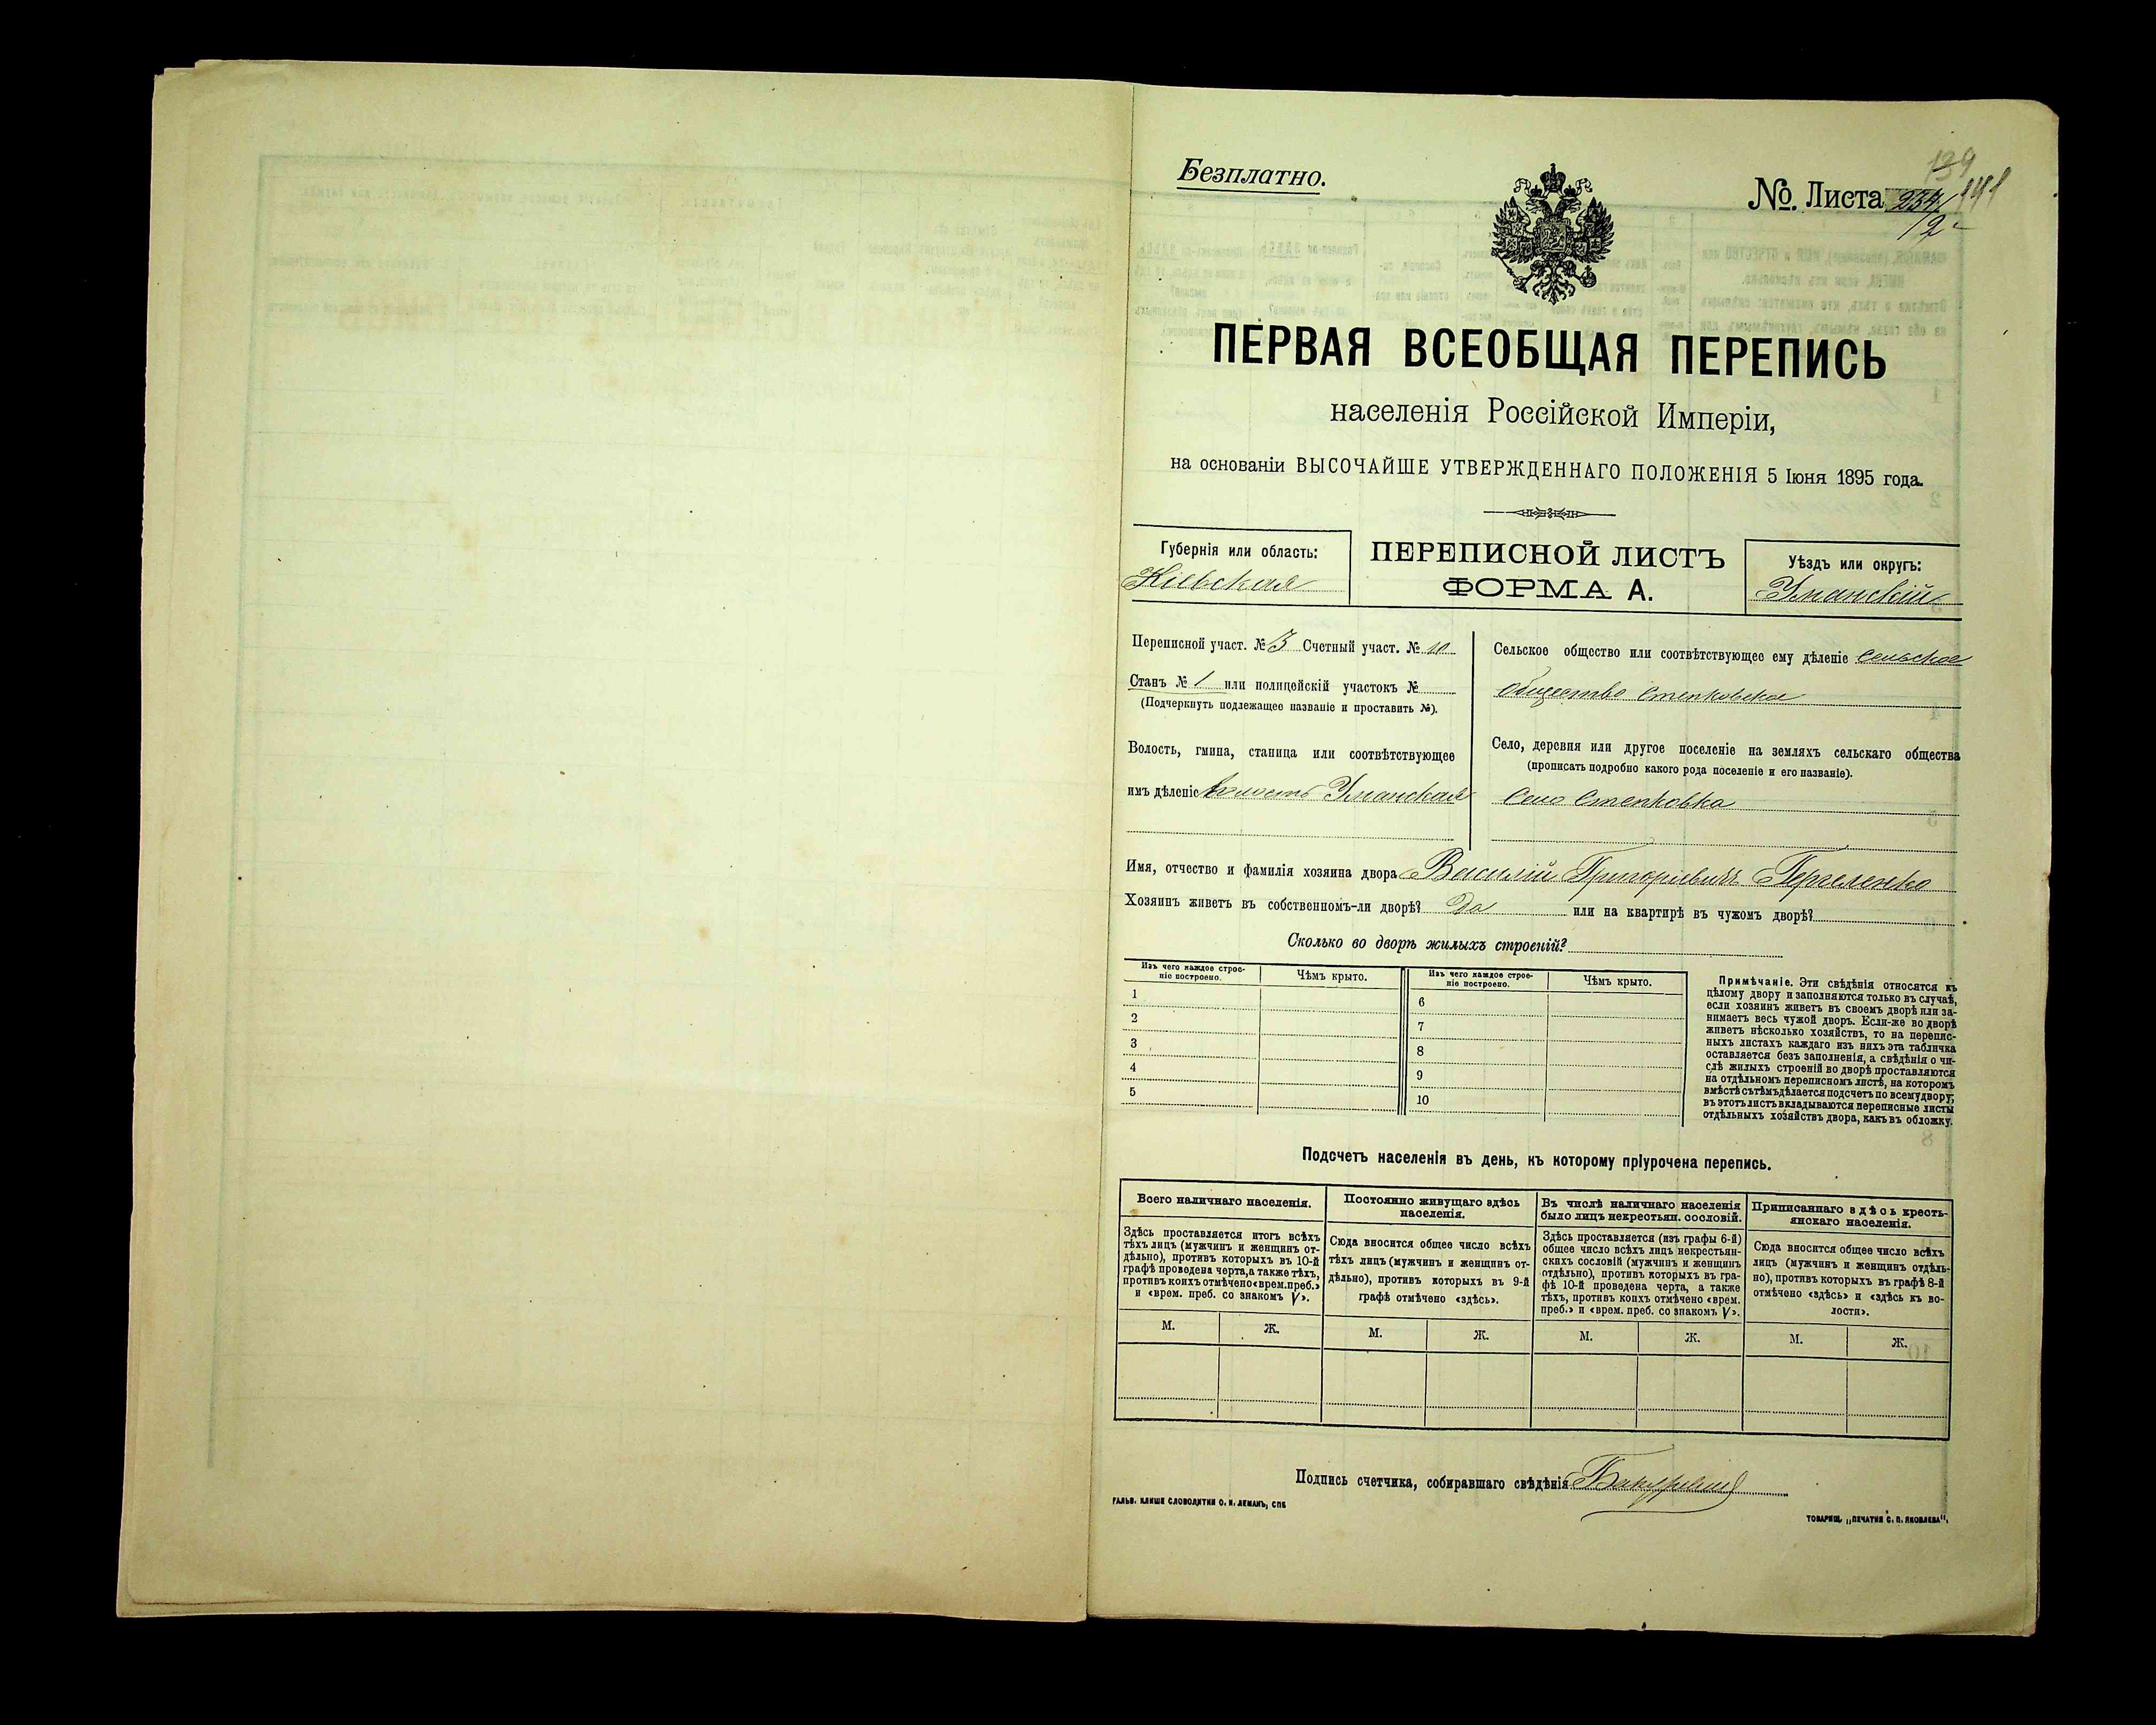 Безплатно.
№. Листа 234/2 141
139
ПЕРВАЯ ВСЕОБЩАЯ ПЕРЕПИСЬ
населенія Россійской Имперіи,
на основаніи ВЫСОЧАЙШЕ УТВЕРЖДЕННАГО ПОЛОЖЕНІЯ 5 Іюня 1895 года.
Губернія или область:
Кіевская
ПЕРЕПИСНОЙ ЛИСТЪ
ФОРМА А.
Уѣздъ или округъ:
Уманскій
Переписной участ. № 3 Счетный участ. № 10
Станъ № 1 или полицейскій участокъ №
(Подчеркнуть подлежащее названіе и проставить №).
Волость, гмина, станица или соотвѣтствующее
имъ дѣленіе Волость Уманская
Сельское общество или соотвѣтствующее ему дѣленіе Сельское
общество Степковское
Село, деревня или другое поселеніе на земляхъ сельскаго общества
(прописать подробно какого рода поселеніе и его названіе).
Село Степковка
Имя, отчество и фамилія хозяина двора Василій Григоріевичъ
Хозяинъ живетъ въ собственномъ-ли дворѣ? Да или на квартирѣ въ чужомъ дворѣ?
Сколько во дворѣ жилыхъ строеній?
Изъ чего каждое строе-
ніе построено.
Чѣмъ крыто.
Изъ чего каждое строе-
ніе построено.
Чѣмъ крыто.
1
2
3
4
5
6
7
8
9
10
Примѣчаніе. Эти свѣдѣнія относятся къ
цѣлому двору и заполняются только въ случаѣ,
если хозяинъ живетъ въ своемъ дворѣ или за-
нимаетъ весь чужой дворъ. Если-же во дворѣ
живетъ нѣсколько хозяйствъ, то на перепис-
ныхъ листахъ каждаго изъ нихъ эта табличка
оставляется безъ заполненія, а свѣдѣнія о чи-
слѣ жилыхъ строеній во дворѣ проставляются
на отдѣльномъ переписномъ листѣ, на которомъ
вмѣстѣ съ тѣмъ дѣлается подсчетъ по всему двору;
въ этотъ листъ вкладываются переписные листы
отдѣльныхъ хозяйствъ двора, какъ въ обложку.
Подсчетъ населенія въ день, къ которому пріурочена перепись.
Всего наличнаго населенія.
Здѣсь проставляется итогъ всѣхъ
тѣхъ лицъ (мужчинъ и женщинъ от-
дѣльно), противъ которыхъ въ 10-й
графѣ проведена черта, а также тѣхъ,
противъ коихъ отмѣчено «врем. преб.»
и «врем. преб. со знакомъ V».
М. Ж.
Постоянно живущаго здѣсь
населенія.
Сюда вносится общее число всѣхъ
тѣхъ лицъ (мужчинъ и женщинъ от-
дѣльно), противъ которыхъ въ 9-й
графѣ отмѣчено «здѣсь».
М. Ж.
Въ числѣ наличнаго населенія
было лицъ некрестьян. сословій.
Здѣсь проставляется (изъ графы 6-й)
общее число всѣхъ лицъ некрестьян-
скихъ сословій (мужчинъ и женщинъ
отдѣльно), противъ которыхъ въ гра-
фѣ 10-й проведена черта, а также
тѣхъ, противъ коихъ отмѣчено «врем.
преб.» и «врем. преб. со знакомъ V».
М. Ж.
Приписаннаго здѣсь кресть-
янскаго населенія.
Сюда вносится общее число всѣхъ
лицъ (мужчинъ и женщинъ отдѣль-
но), противъ которыхъ въ графѣ 8-й
отмѣчено «здѣсь» и «здѣсь къ во-
лости».
М. Ж.
Подпись счетчика, собиравшаго свѣдѣнія
ГАЛЬВ. КЛИШЕ СЛОВОЛИТНИ О. И. ЛЕМАНЪ, СПБ
ТОВАРИЩ. „ПЕЧАТНЯ С. П. ЯКОВЛЕВА".